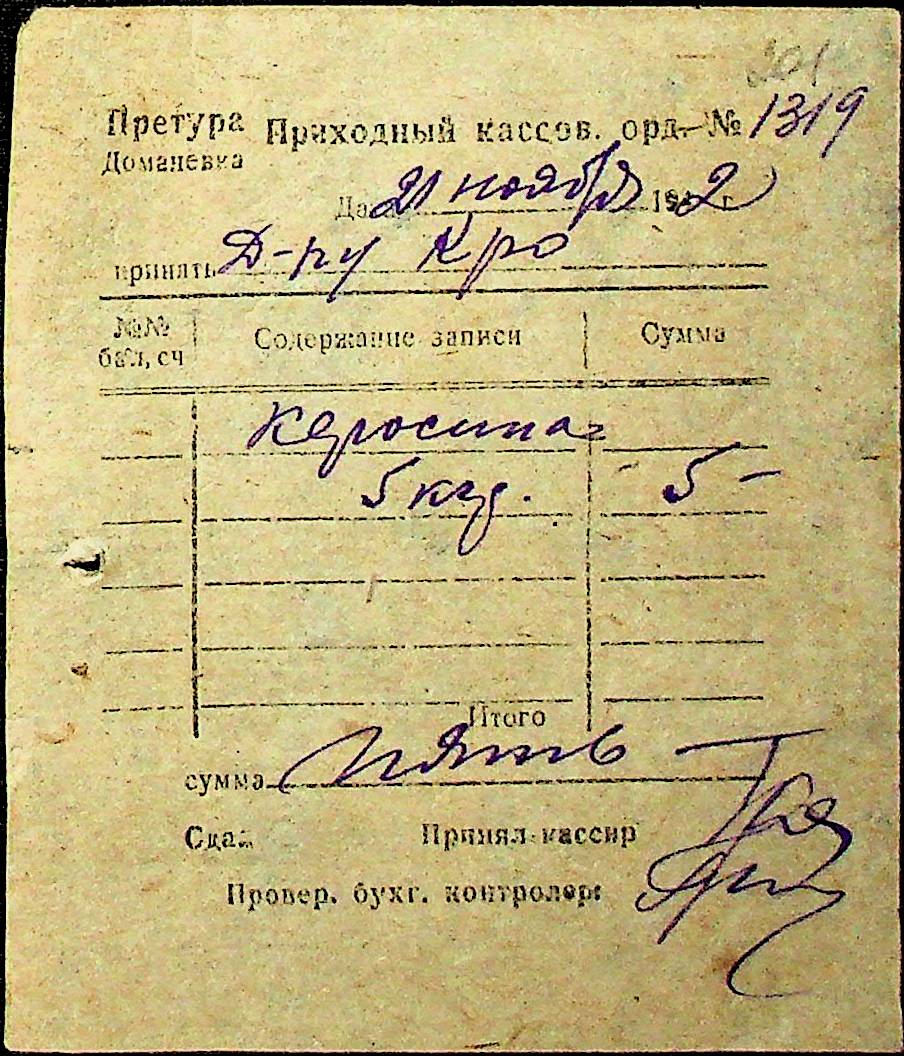 201
Претура Приходный кассов. орд. № 1319
Доманевка
Дата 21 ноября 1942 г
принять Д-ру Кро
№№ бал, сч Содержание записи Сумма
Керосина
5 кгр. 5 -
Итого
сумма Пять
Сдал Принял кассир
Провер. бухг. контролер: